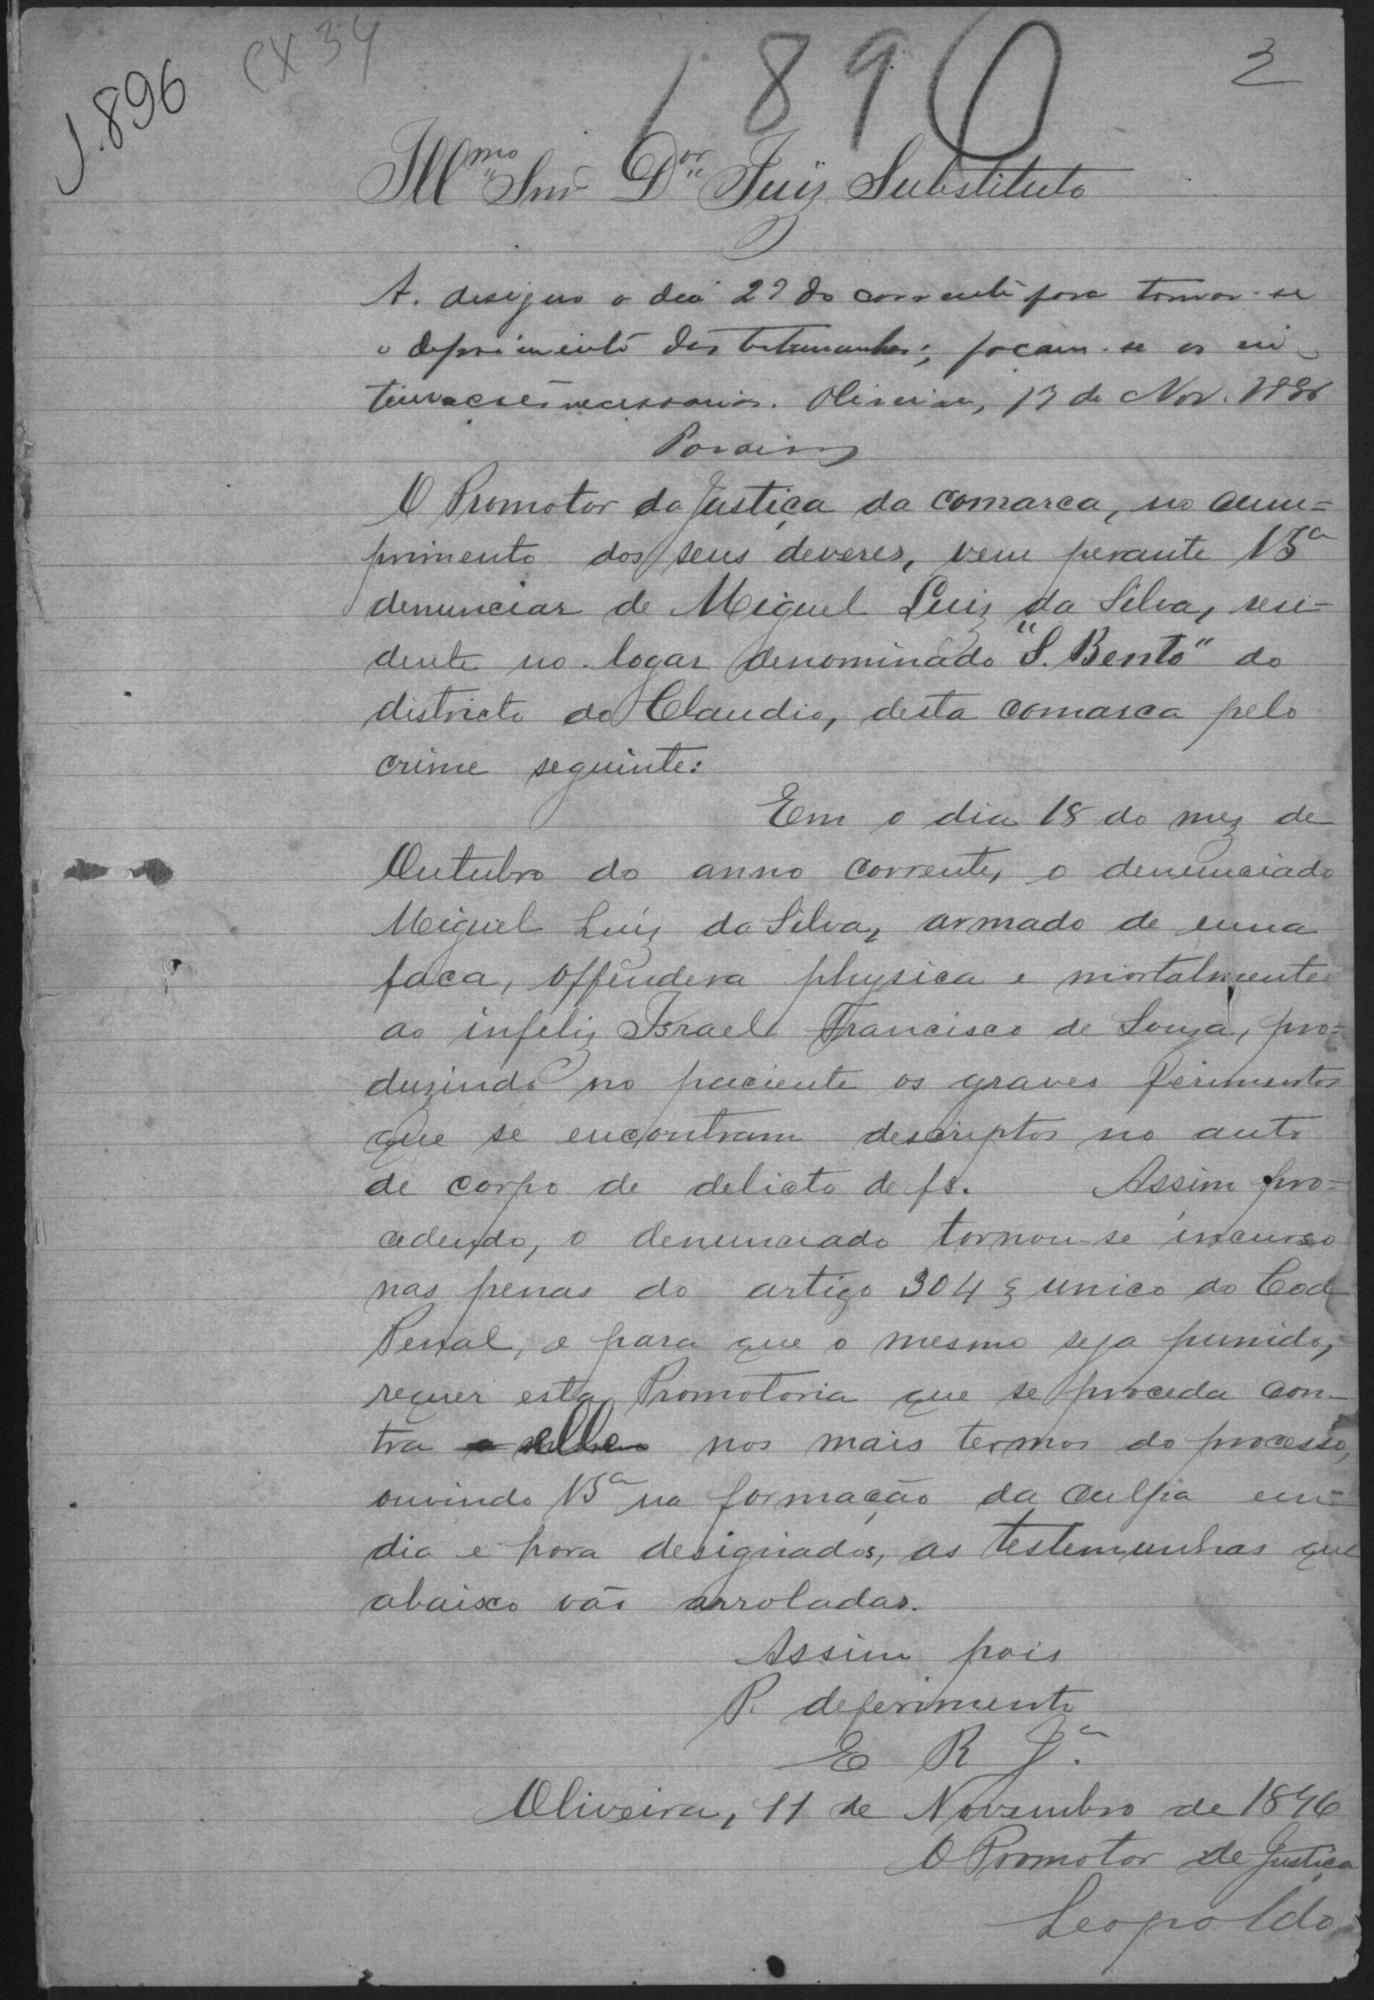 1896
CX 34
1896
2
Illmo Snr Dor Juiz Substituto
A. designo o dia 27 do corrente para tomar-se
o depoimento das testemunhas; façam-se as in
timações necessarias. Oliveira, 13 de Nov. 1896
O Promotor da Justiça da comarca, no cum=
primento dos seus deveres, vem perante VSa
denunciar de Miguel Luiz da Silva, resi=
dente no logar denominado "S. Bento" do
districto do Claudio, desta comarca pelo
crime seguinte:
Em o dia 18 do mez de
Outubro do anno corrente, o denunciado
Miguel Luiz da Silva, armado de uma
faca, offendera physica e mortalmente
ao infeliz Israel Francisco de Souza, pro=
duzindo no paciente os graves ferimentos
que se encontram descriptos no auto
de corpo de delicto de fs. Assim pro=
cedendo, o denunciado tornou-se incurso
nas penas do artigo 304 § unico do Cod
Penal, e para que o mesmo seja punido,
requer esta Promotoria que se proceda con-
tra elle nos mais termos do processo,
ouvindo VSa na formação da culpa em
dia e hora designados, as testemunhas que
abaixo vão arroladas.
Assim pois
P. deferimento
E R Ja.
Oliveira, 11 de Novembro de 1896
O Promotor de Justiça
Leopoldo